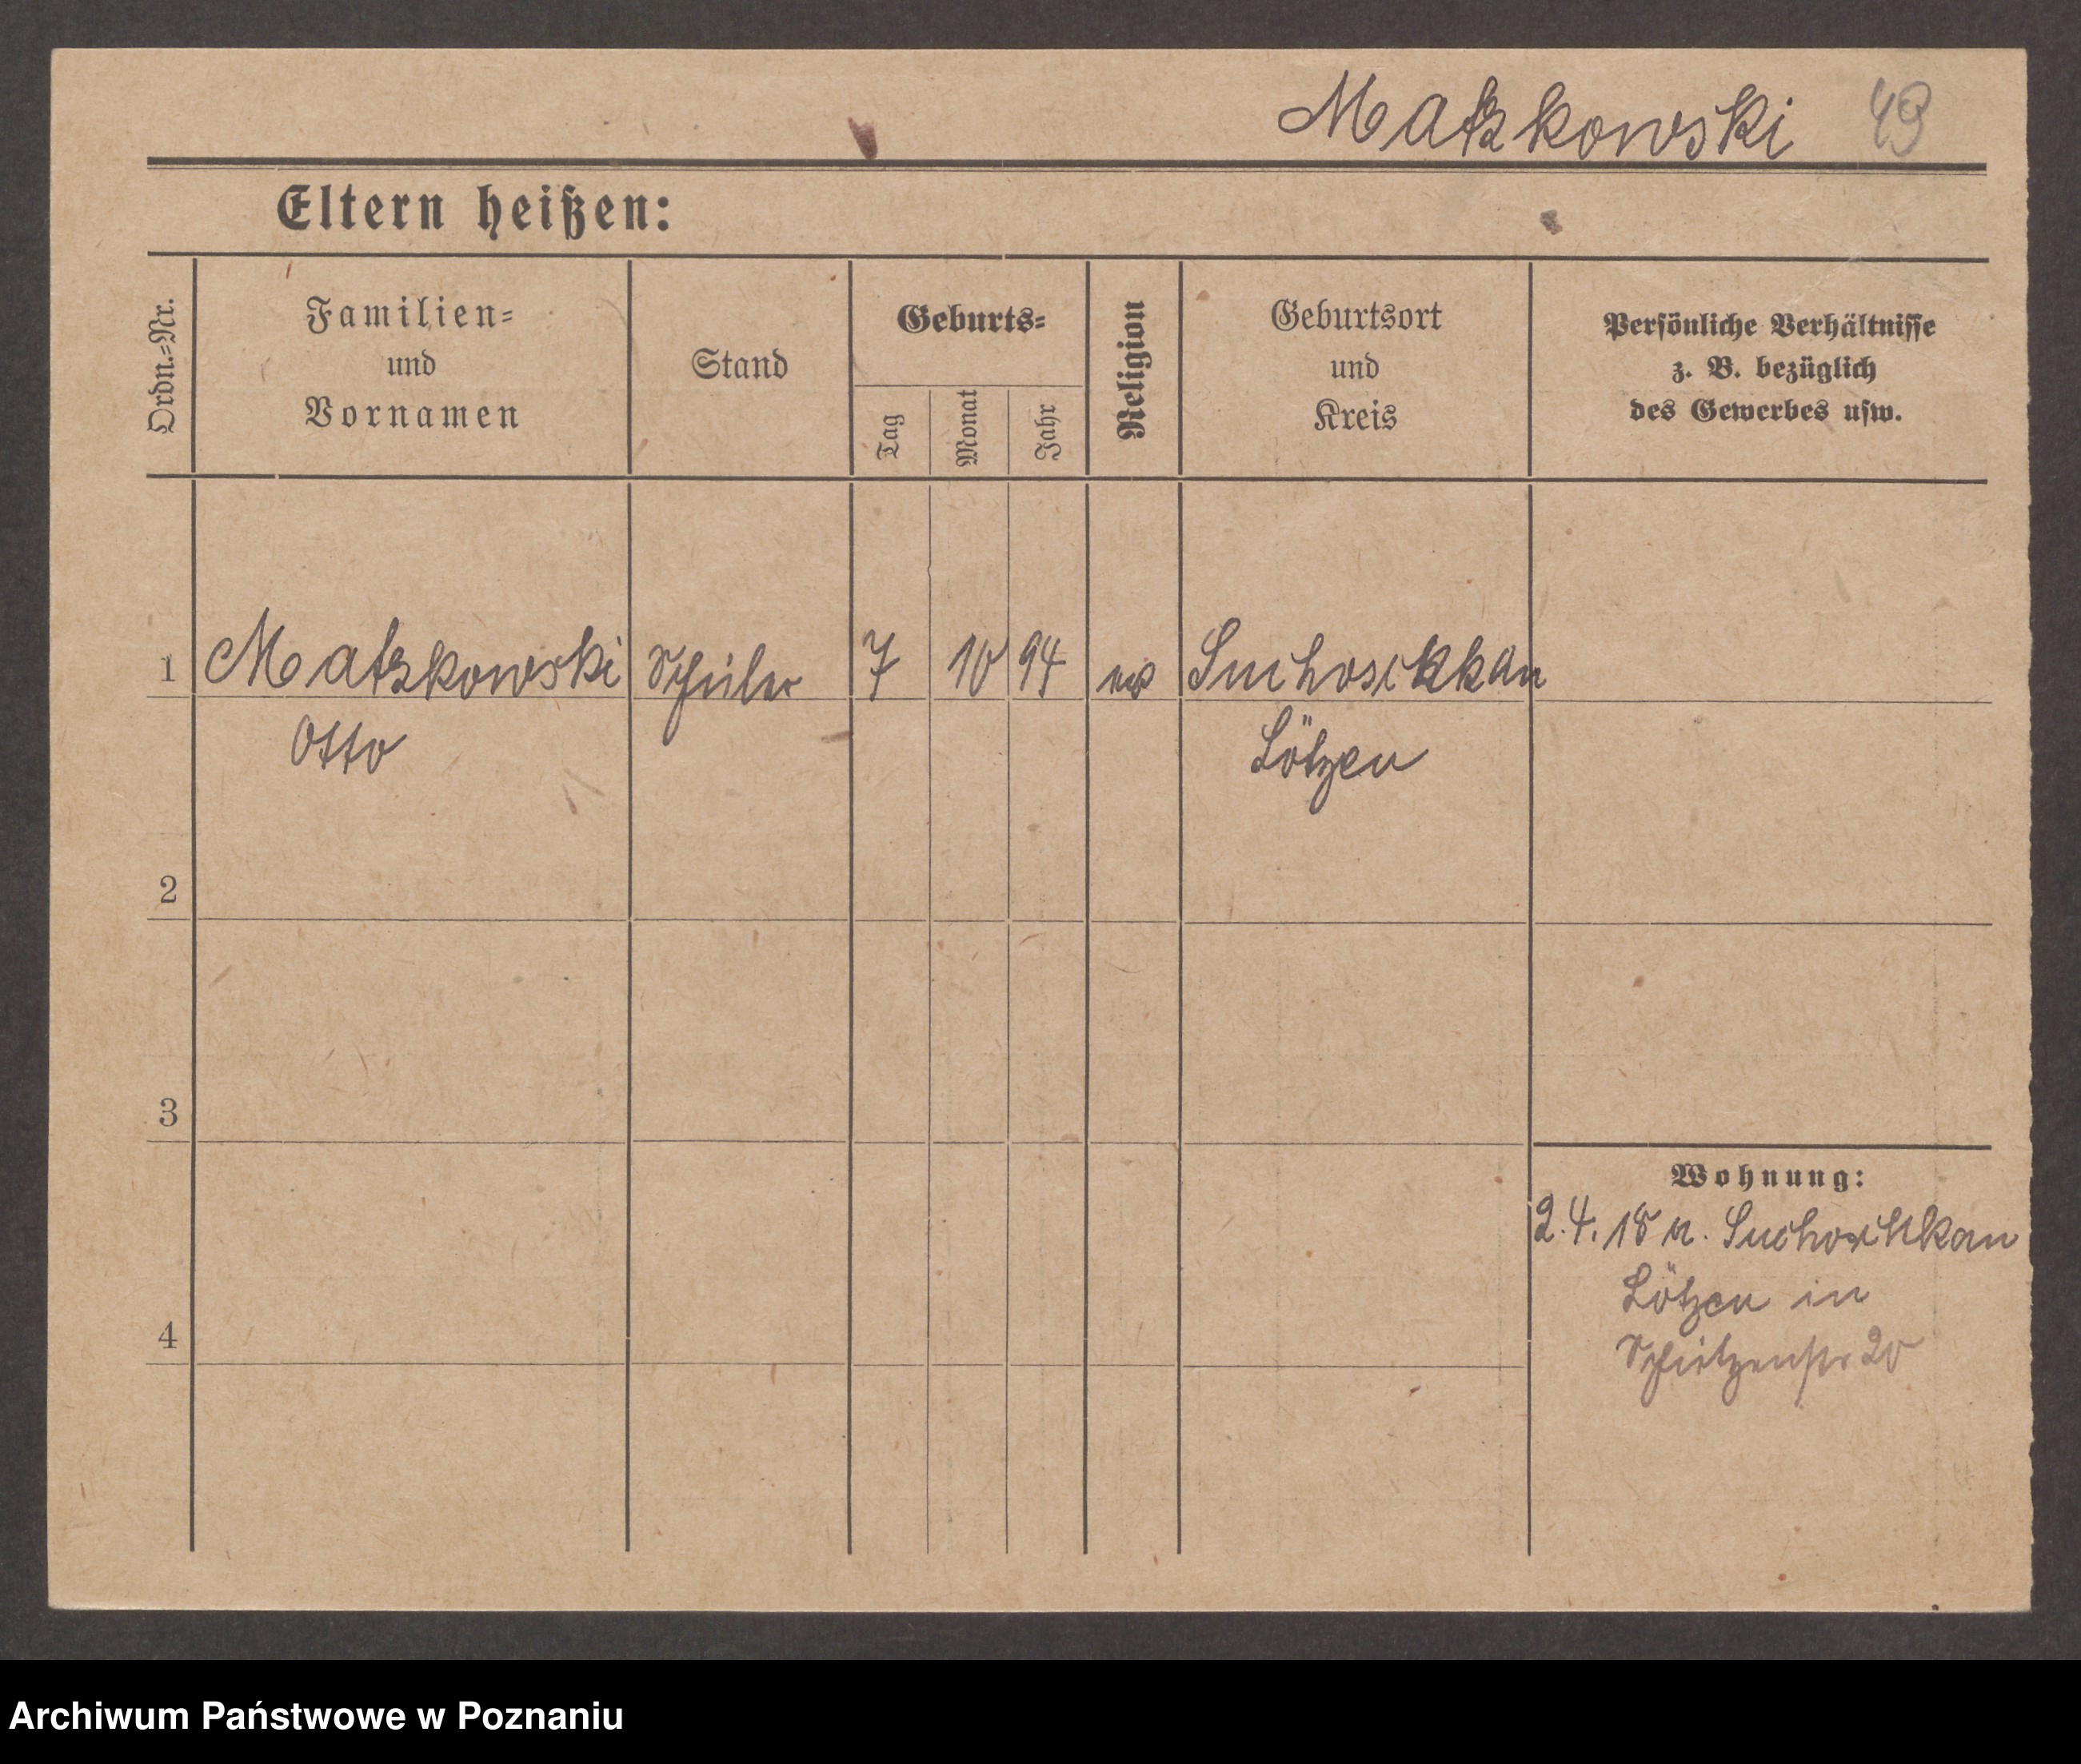 Matzkowski 49
Eltern heißen:
Ordn.=Nr.
Familien=
und
Vornamen
Stand
Geburts=
Tag
Monat
Jahr
Religion
Geburtsort
und
Kreis
Persönliche Verhältnisse
z. B. bezüglich
des Gewerbes usw.
1 Matzkowski Schüler 7 10 94
Otto Lötzen
2
3
4
Wohnung:
2.4.18 n.
Lötzen in
Schützenstr 20
Archiwum Państwowe w Poznaniu